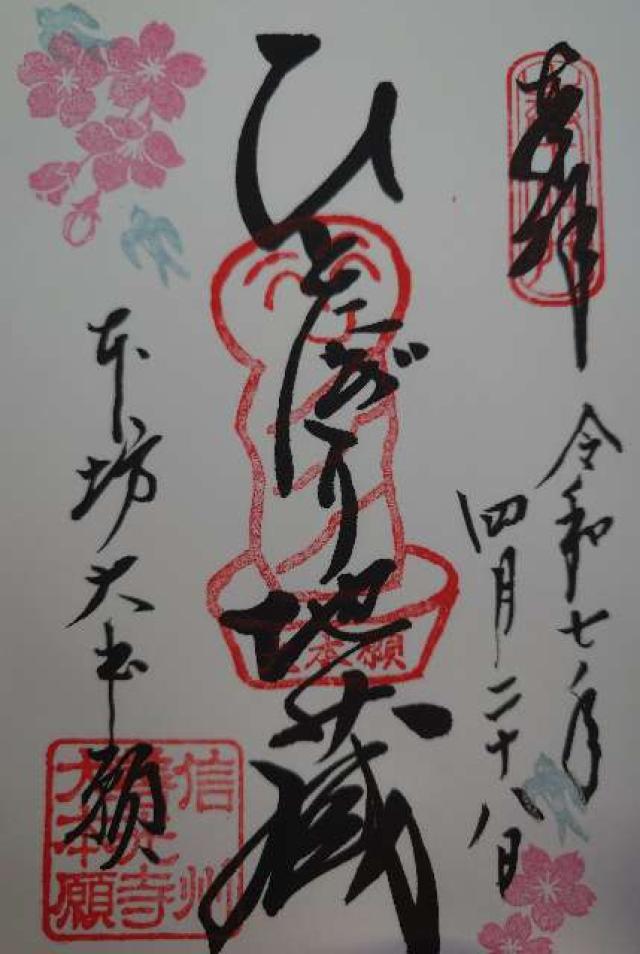 奉拝
令和七年
四月二十八日
ひとにぎり地蔵
大本願
本坊大本願
信州
善光寺
大本願